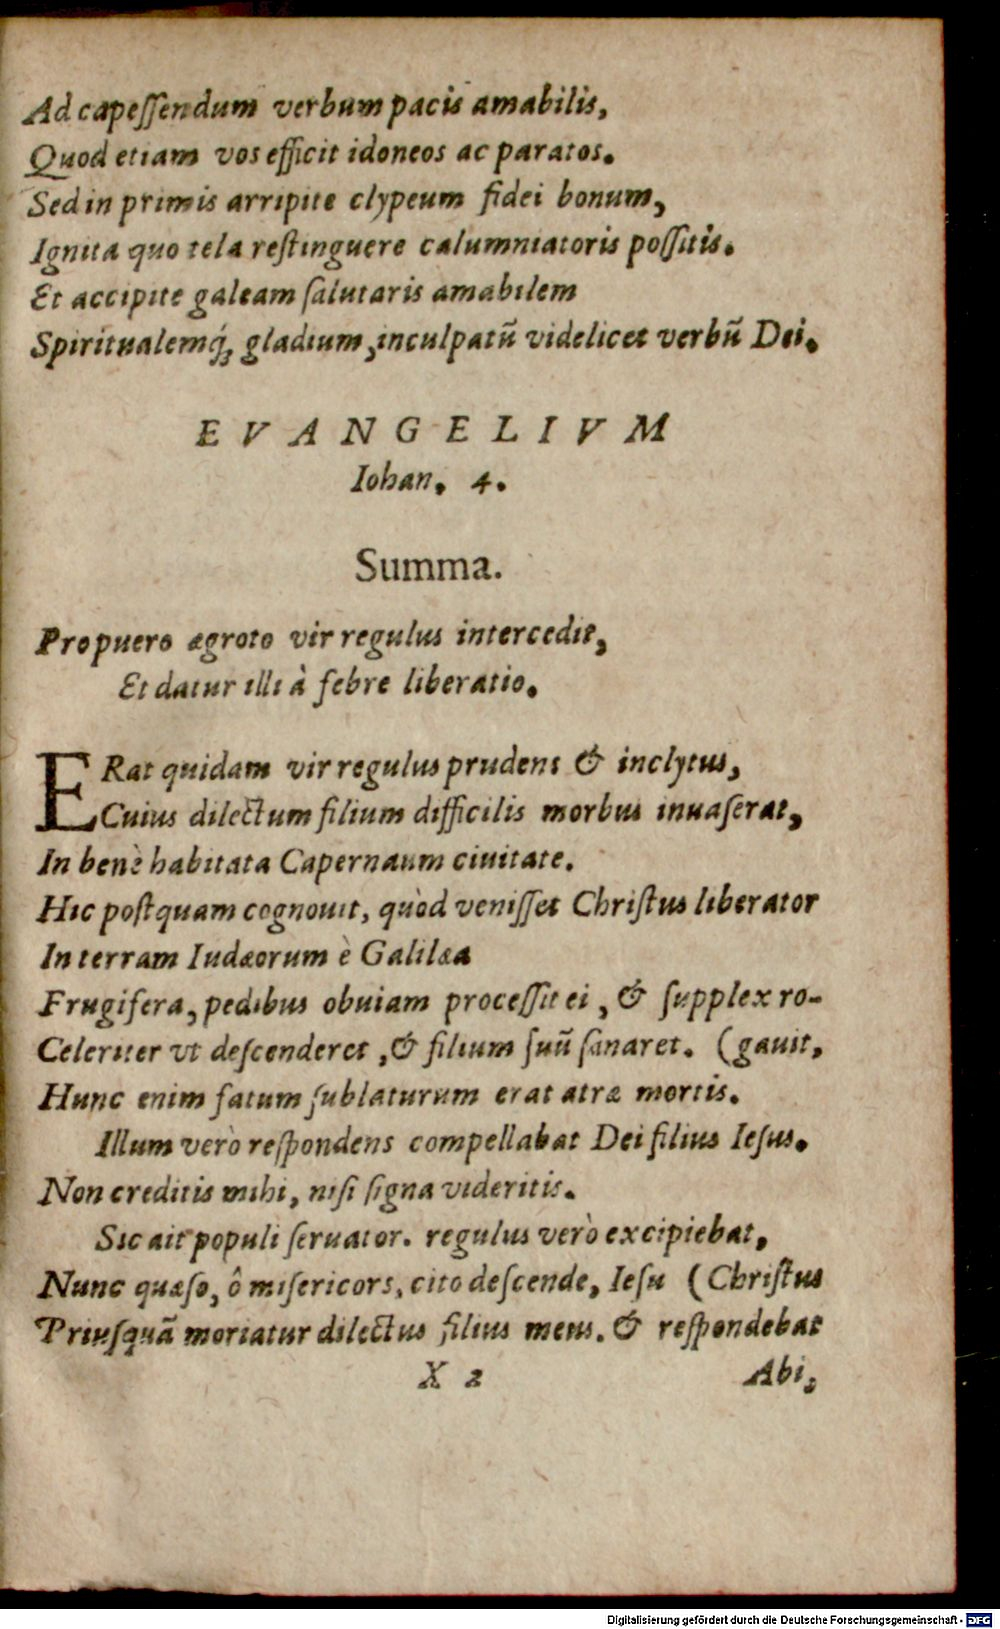 Ad capeſſendum verbum pacis amabilis,
Quod etiam vos efficit idoneos ac paratos.
Sed in primis arripite clypeum fidei bonum,
Ignita quo tela reſtinguere calumniatoris poſſitis.
Et accipite galeam ſalutaris amabilem
Spiritualemq́; gladium, inculpatũ videlicet verbũ Dei.
EVANGELIVM
Iohan. 4.
Summa.
Pro puero ægroto vir regulus intercedit,
Et datur illi à febre liberatio.
ERat quidam vir regulus prudens & inclytus,
Cuius dilectum filium difficilis morbus inuaſerat,
In benè habitata Capernaum ciuitate.
Hic poſtquam cognouit, quòd veniſſet Chriſtus liberator
In terram Iudæorum è Galilæa
Frugifera, pedibus obuiam proceſſit ei, & ſupplex ro-
Celeriter vt deſcenderet, & filium ſuũ ſanaret. (gauit,
Hunc enim fatum ſublaturum erat atræ mortis.
Illum verò reſpondens compellabat Dei filius Ieſus.
Non creditis mihi, niſi ſigna videritis.
Sic ait populi ſeruator. regulus verò excipiebat,
Nunc quæſo, ô miſericors, cito deſcende, Ieſu (Chriſtus
Priuſquã moriatur dilectus filius meus. & reſpondebat
X 2 Abi,
Digitalisierung gefördert durch die Deutsche Forschungsgemeinschaft - DFG